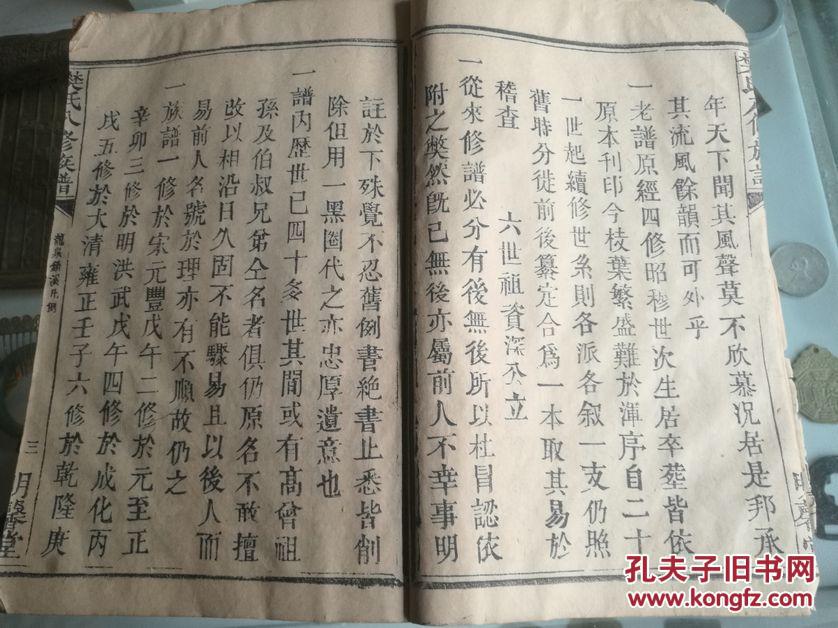 年天下聞其風聲莫不欣慕況居是邦承
其流風餘韻而可外乎
一老譜原經四修昭穆世次生居卒塟皆依
原本刊印今枝葉繁盛難於渾序自二十
一世起續修世系則各派各叙一支仍照
舊時分徙前後纂定合爲一本取其易於
稽查
六世祖資深公立
一從來修譜必分有後無後所以杜冒認依
附之獘然既已無後亦屬前人不幸事明
註於下殊覺不忍舊例書絶書止悉皆削
除但用一黑圈代之亦忠厚遺意也
一譜内歷世已四十多世其間或有高曾祖
孫及伯叔兄弟仝名者俱仍原名不敢擅
改以相沿日久固不能驟易且以後人而
易前人名號於理亦有不順故仍之
一族譜一修於宋元豐戊午二修於元至正
辛卯三修於明洪武戊午四修於成化丙
戌五修於大清雍正壬子六修於乾隆庚
樊氏八修族譜
三
明馨堂
樊氏八修族譜
孔夫子旧书网
www.kongfz.com